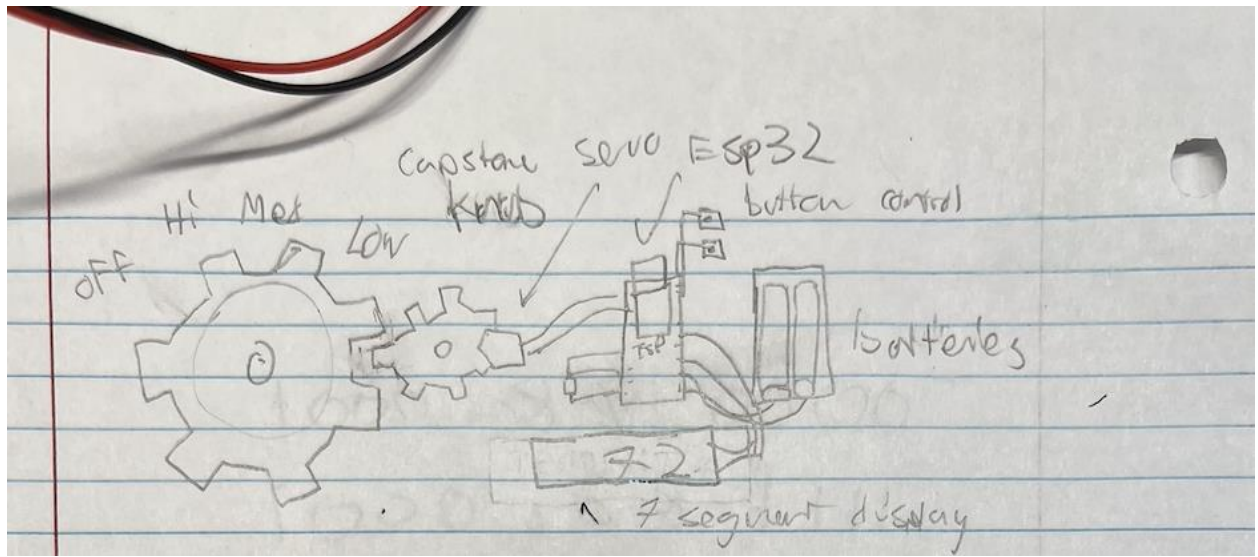 Capstone servo Esp32
Knob button control
Hi Med
Low
OFF
ESP
batteries
72
7 segment display